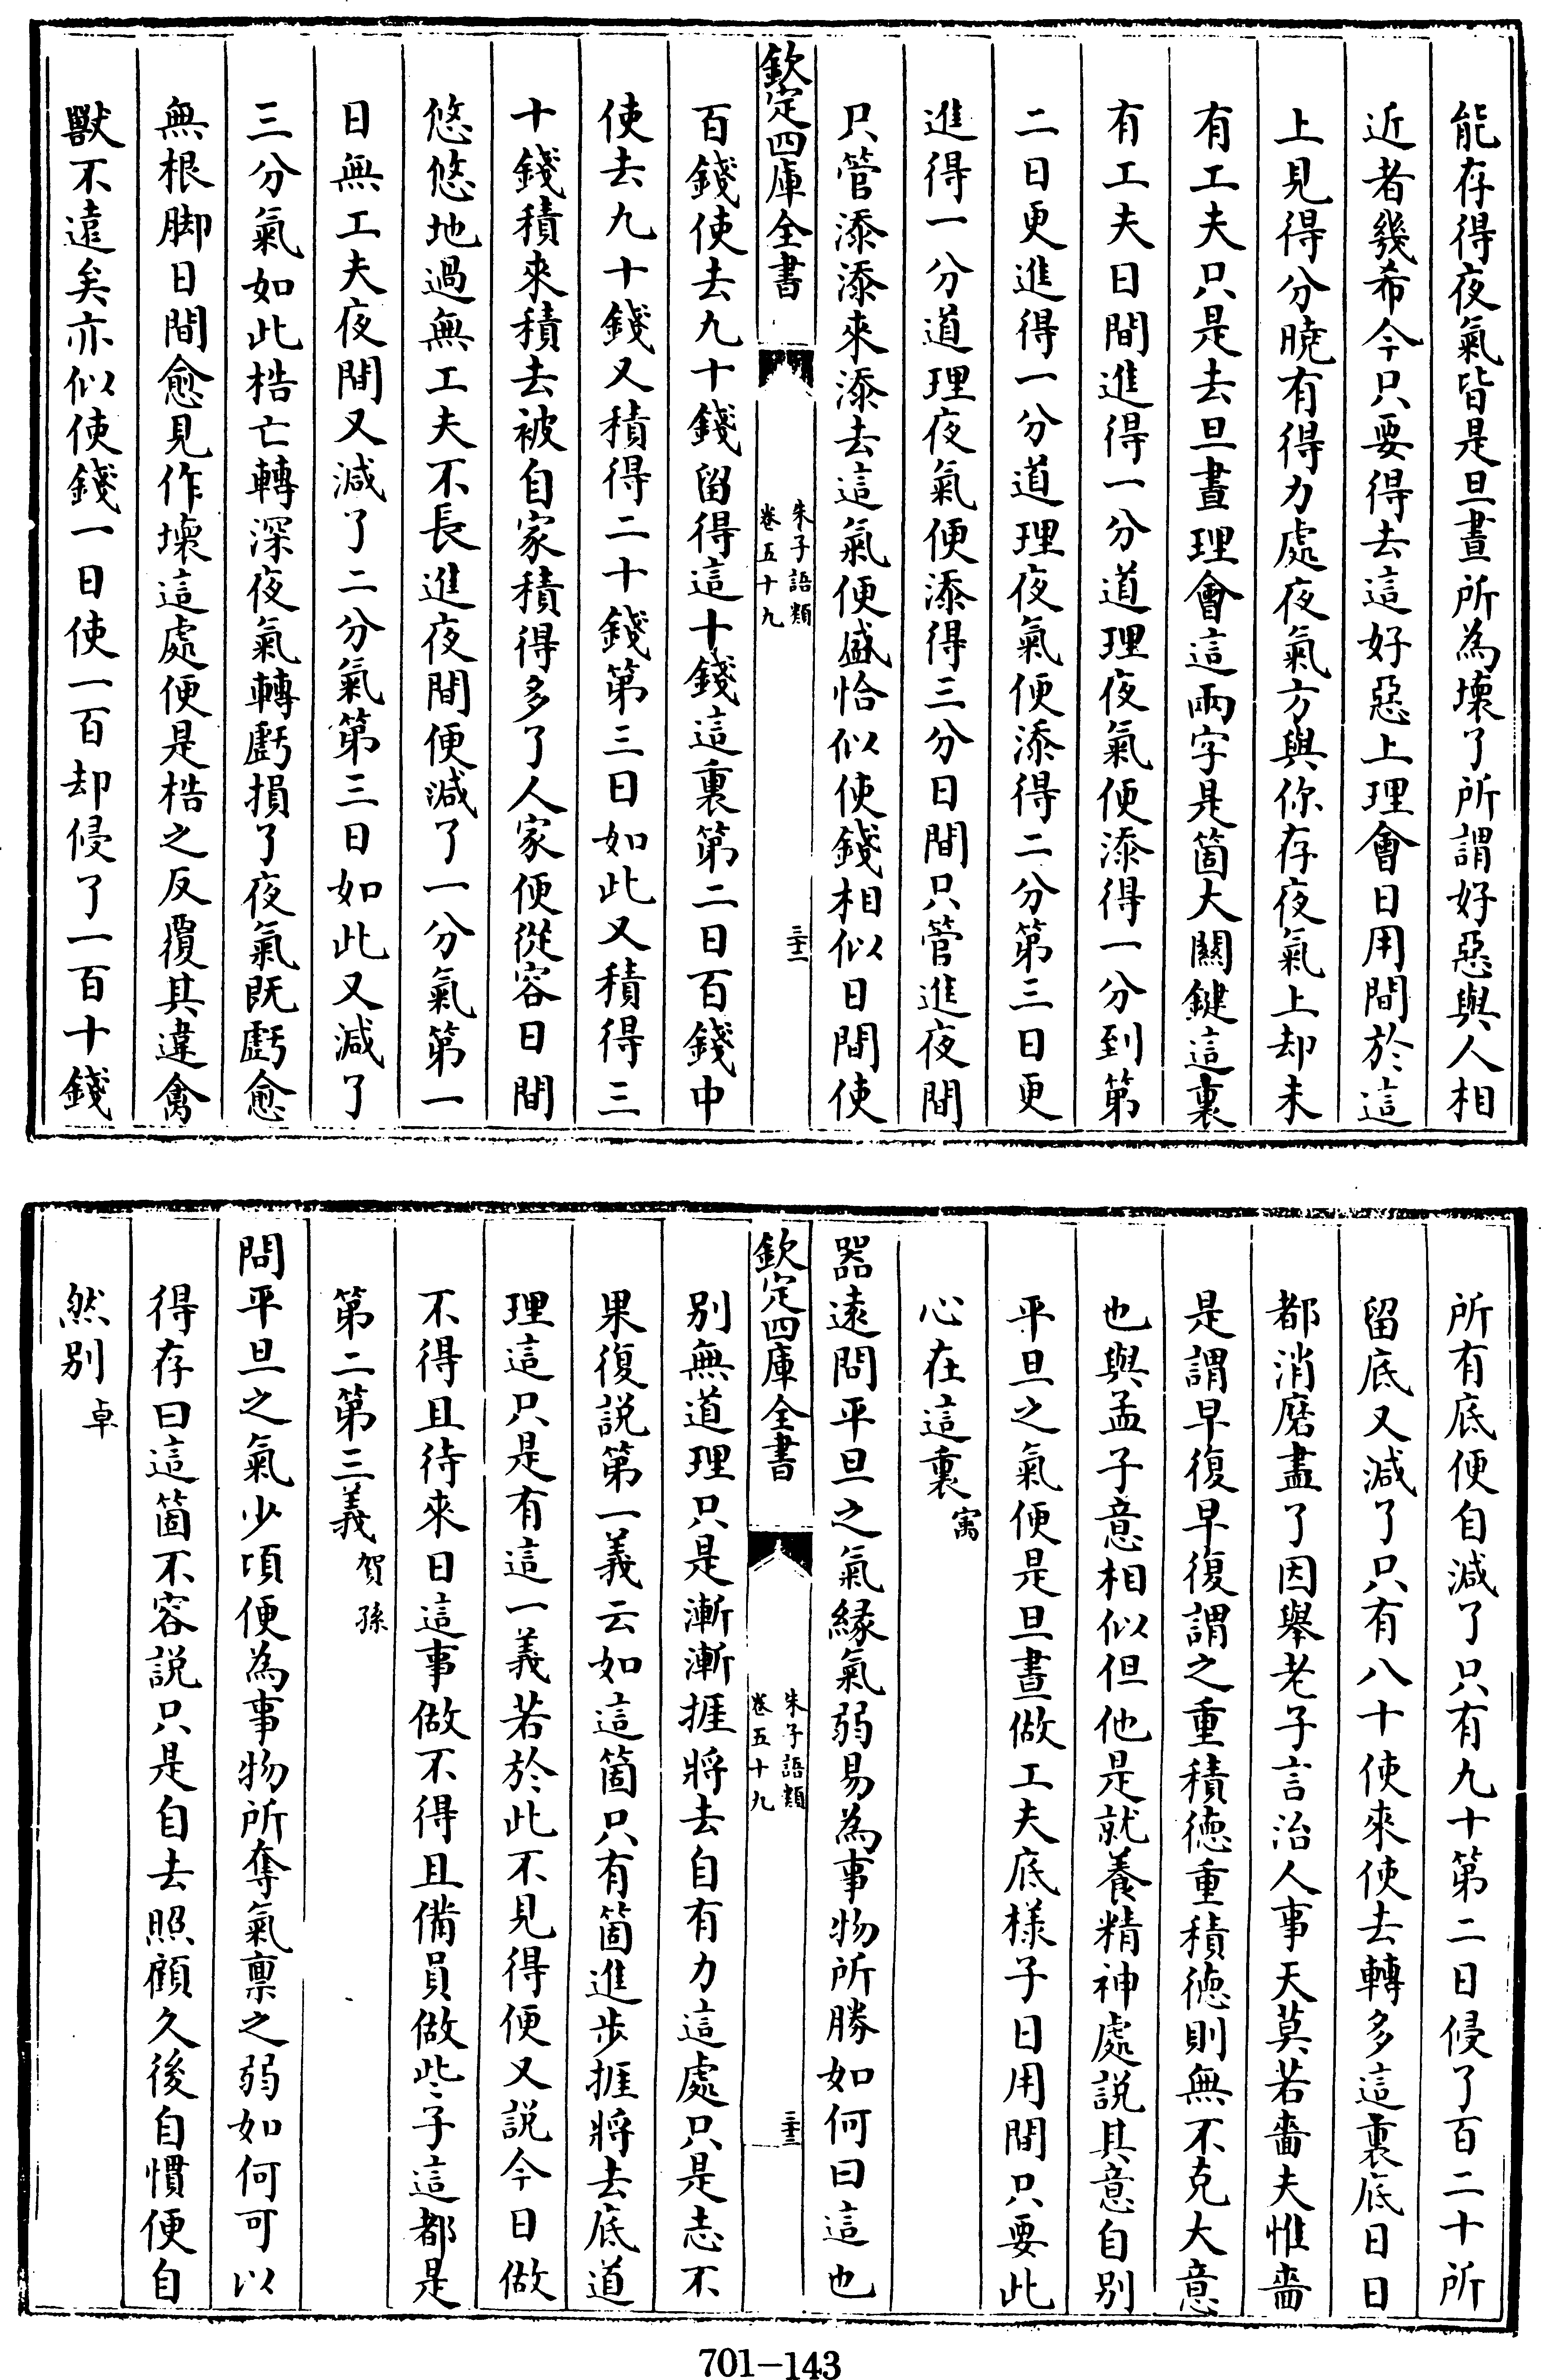 能存得夜氣皆是旦晝所為壞了所謂好惡與人相
近者幾希今只要得去這好惡上理會日用間於這
上見得分曉有得力處夜氣方與你存夜氣上却未
有工夫只是去旦晝理會這兩字是箇大關鍵這裏
有工夫日間進得一分道理夜氣便添得一分到第
二日更進得一分道理夜氣便添得二分第三日更
進得一分道理夜氣便添得三分日間只管進夜間
只管添添來添去這氣便盛恰似使錢相似日間使
欽定四庫全書
朱子語類
卷五十九
三十二
百錢使去九十錢留得這十錢這裏第二日百錢中
使去九十錢又積得二十錢第三日如此又積得三
十錢積來積去被自家積得多了人家便從容日間
悠悠地過無工夫不長進夜間便減了一分氣第一
日無工夫夜間又減了二分氣第三日如此又減了
三分氣如此梏亡轉深夜氣轉虧損了夜氣既虧愈
無根脚日間愈見作壞這處便是梏之反覆其違禽
獸不遠矣亦似使錢一日使一百却侵了一百十錢
所有底便自減了只有九十第二日侵了百二十所
留底又減了只有八十使來使去轉多這裏底日日
都消磨盡了因舉老子言治人事天莫若嗇夫惟嗇
是謂早復早復謂之重積德重積德則無不克大意
也與孟子意相似但他是就養精神處說其意自別
平旦之氣便是旦晝做工夫底樣子日用間只要此
心在這裏寓
器遠問平旦之氣緣氣弱易為事物所勝如何曰這也
欽定四庫全書
朱子語類
卷五十九
三十三
別無道理只是漸漸捱將去自有力這處只是志不
果復說第一義云如這箇只有箇進步捱將去底道
理這只是有這一義若於此不見得便又說今日做
不得且待來日這事做不得且備員做些子這都是
第二第三義賀孫
問平旦之氣少頃便為事物所奪氣稟之弱如何可以
得存曰這箇不容說只是自去照顧久後自慣便自
然別卓
701-143